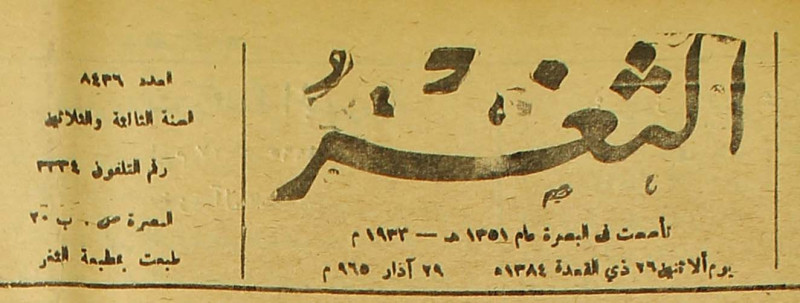 الثغر
تأسست في البصرة عام ١٣٥١ هـ — ١٩٣٣ م
يوم ألاثنين ٢٦ ذي القعدة ١٣٨٤ه ٢٩ آذار ٩٦٥ م
العدد ٨٤٣٦
السنة الثالثة والثلاثين
رقم التلفون ٣٣٣٤
البصرة ص . ب ٣٠
طبعت بمطبعة الثغر